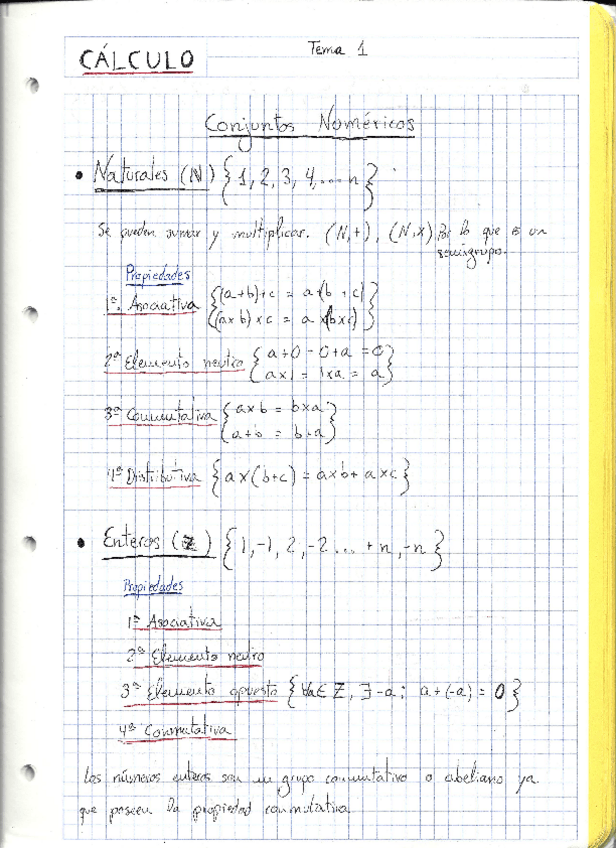 CÁLCULO
Tema 1
Conjuntos Numéricos
• Naturales (N) {1, 2, 3, 4, ... n}
Se pueden sumar y multiplicar. (N,+), (N,x) Por lo que es un
semigrupo.
Propiedades
1ª. Asociativa {(a+b)+c = a+(b+c)
(axb)xc = ax(bxc)}
2ª Elemento neutro {a+0 = 0+a = 0
ax1 = 1xa = a}
3ª Conmutativa {axb = bxa
a+b = b+a}
4ª Distributiva {ax(b+c) = axb + axc}
• Enteros (Z) {1, -1, 2, -2 ... +n, -n}
Propiedades
1ª Asociativa
2ª Elemento neutro
3ª Elemento opuesto {∀a∈Z, ∃-a; a+(-a) = 0}
4ª Conmutativa
Los números enteros son un grupo conmutativo o abeliano ya
que poseen la propiedad conmutativa.